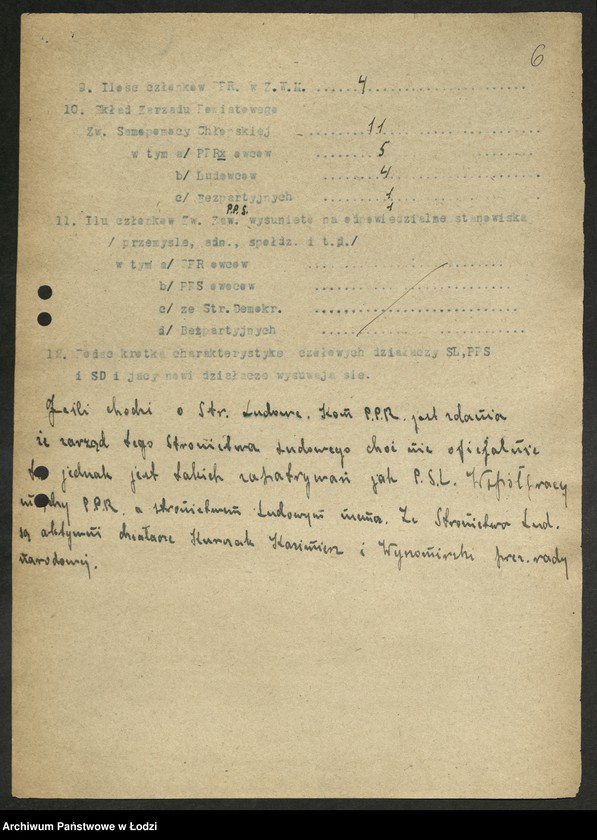 6
9. Ilość członków PPR. w Z.W.M. ......4......................
10. Skład Zarządu Powiatowego
Zw. Samopomocy Chłopskiej ..........11....................
w tym a/ PPRx owców ..........5..................
b/ Ludowców ..........4..................
c/ Bezpartyjnych ..........1..................
P.P.S. 1
11. Ilu członków Zw. Zaw. wysunięto na odpowiedzialne stanowiska
/ przemyśle, adm., spółdz. i t.p./
w tym a/ PPR owców ..............................
b/ PPS owców ..............................
c/ ze Str. Demokr. ..............................
d/ Bezpartyjnych ..............................
12. Podać krótką charakterystykę czołowych działaczy SL,PPS
i SD i jacy nowi działacze wysuwają się.
Jeśli chodzi o Str. Ludowe. Kom P.P.R. jest zdania
że zarząd tego Stronictwa Ludowego choć nie oficjalnie
to jednak jest takich zapatrywań jak P.S.L. Współpracy
między P.P.R. a stronictwem Ludowym niema. Ze Stronictwa Lud.
są aktywni działacze Kurczak Kazimierz i prez. rady
narodowej.
Archiwum Państwowe w Łodzi